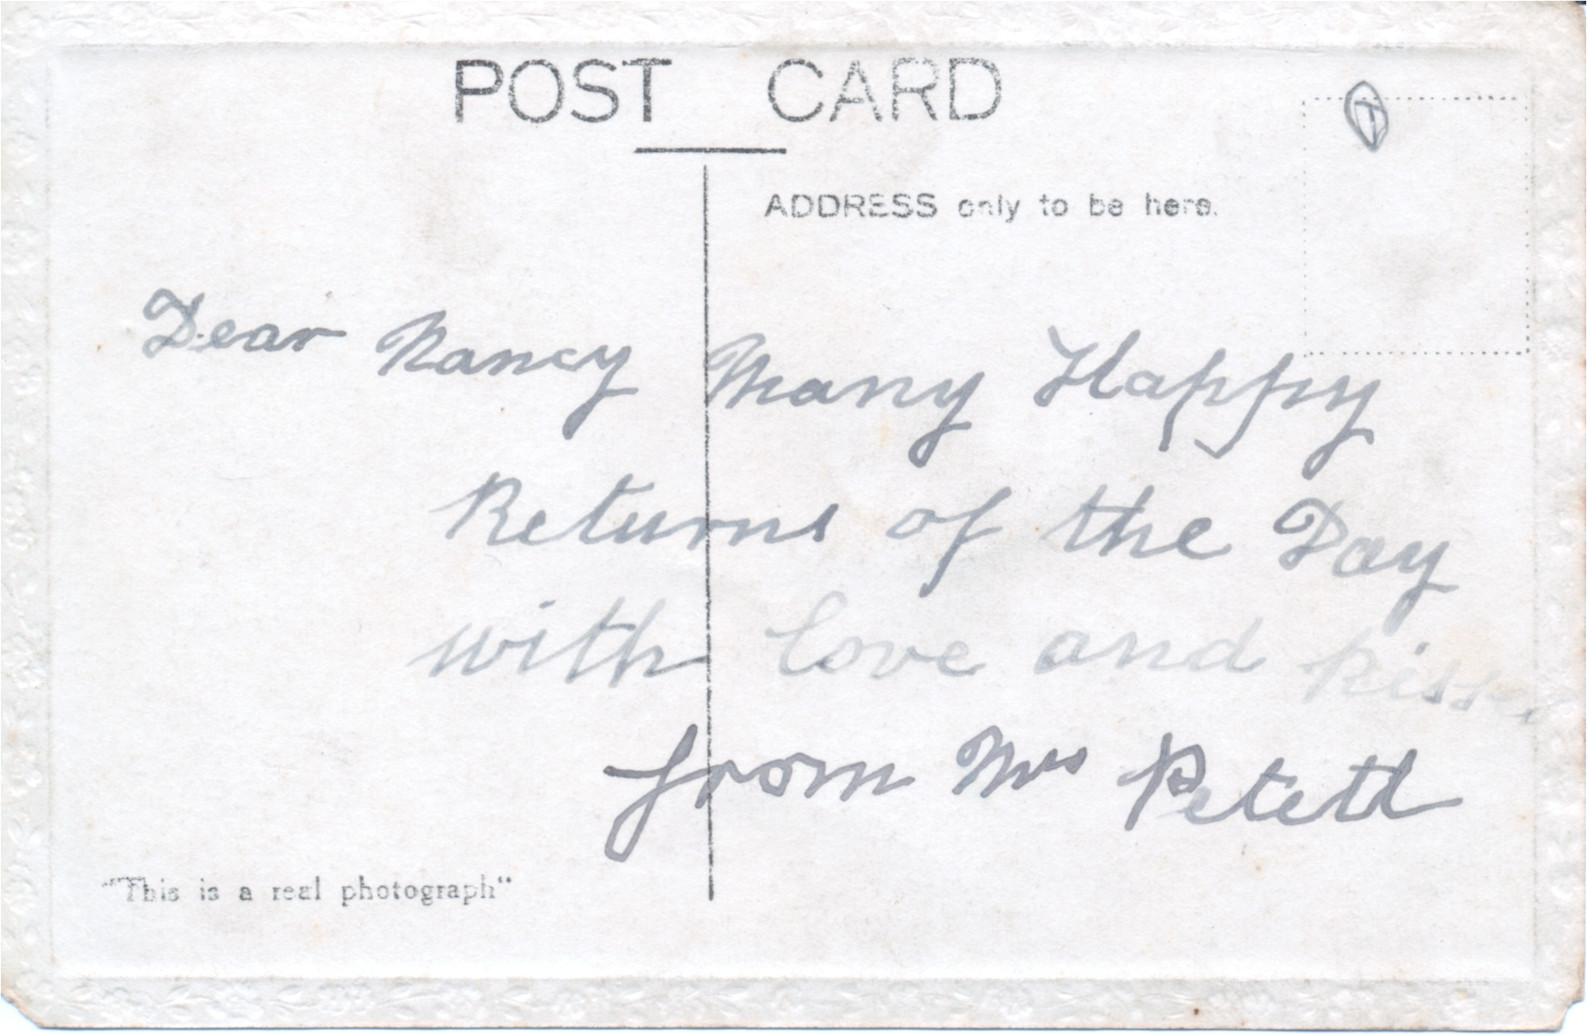 POST CARD
ADDRESS only to be here.
Dear Nancy Many Happy
Returns of the Day
with love and
from Mrs
"This is a real photograph"